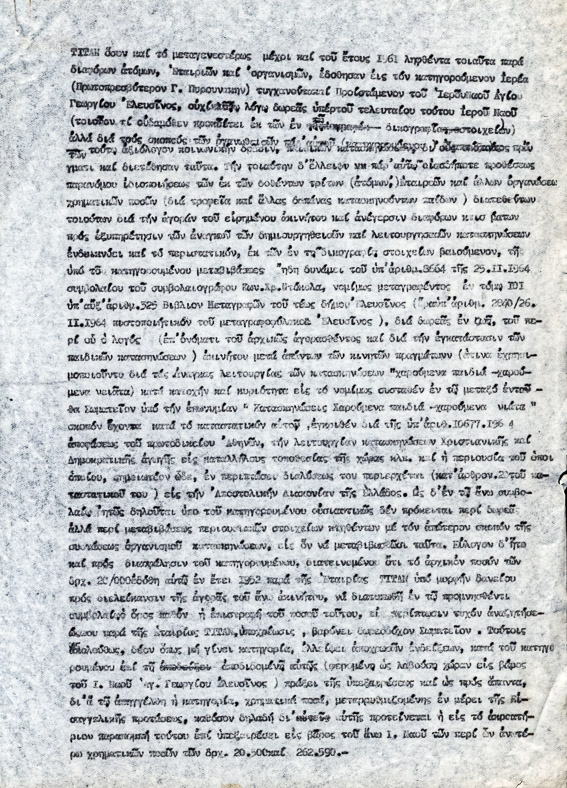 ΤΙΤΑΝ ὅσον καί τό μεταγενεστέρως μέχρι καί τοῦ ἔτους 1961 ληφθέντα τοιαῦτα παρά
διαφόρων ἀτόμων, Ἑταιριῶν καί ὀργανισμῶν, ἐδόθησαν εἰς τόν κατηγορούμενον ἱερέα
(Πρωτοπρεσβύτερον Γ. Πυρουνάκην) τυγχάνοντα καί Προϊστάμενον τοῦ Ἱεροῦ Ναοῦ Ἁγίου
Γεωργίου Ἐλευσῖνος, οὐχί λόγῳ δωρεᾶς ὑπέρ τοῦ τελευταίου τούτου ἱεροῦ Ναοῦ
(τοιοῦτόν τι οὐδαμόθεν προκύπτει ἐκ τῶν ἐν δικογραφίᾳ στοιχείων)
ἀλλά διά τούς σκοπούς τῶν
τούτου ἀξιόλογον κοινωνικήν δρᾶσιν,
γματι καί διετέθησαν ταῦτα. Τήν τοιαύτην δ' ἔλλειψιν παρ' αὐτῷ οἱασδήποτε προθέσεως
παρανόμου ἰδιοποιήσεως τῶν ἐκ τῶν δοθέντων τρίτων (ἀτόμων,) Ἑταιριῶν καί ἄλλων ὀργανώσεων
χρηματικῶν ποσῶν (διά τροφεῖα καί ἄλλας δαπάνας κατασκηνούντων παίδων) διατεθέντων
τοιούτων διά τήν ἀγοράν τοῦ εἰρημένου ἀκινήτου καί ἀνέγερσιν διαφόρων κτισμάτων
πρός ἐξυπηρέτησιν τῶν ἀναγκῶν τῶν δημιουργηθεισῶν καί λειτουργησασῶν κατασκηνώσεων
ἐνδεικνύει καί τό περιστατικόν, ἐκ τῶν ἐν τῇ δικογραφίᾳ στοιχείων βαιούμενον, τῆς
ὑπό τοῦ κατηγορουμένου μεταβιβάσεως ἤδη δυνάμει τοῦ ὑπ' ἀριθμ. 3664 τῆς 25.11.1964
συμβολαίου τοῦ συμβολαιογράφου νομίμως μεταγραφέντος ἐν τόμῳ ΙΟΙ
ὑπ' αὔξ. ἀριθμ. 325 Βιβλίον Μεταγραφῶν τοῦ τέως δήμου Ἐλευσῖνος ( ὑπ' ἀριθμ. 2840/26.
ΙΙ.1964 πιστοποιητικόν τοῦ μεταγραφοφύλακος Ἐλευσῖνος), διά δωρεᾶς ἐν ζωῇ, τοῦ πε-
ρί οὗ ὁ λόγος (ἐπ' ὀνόματι τοῦ ἀρχικῶς ἀγορασθέντος καί διά τήν ἐγκατάστασιν τῶν
παιδικῶν κατασκηνώσεων) ἀκινήτου μετά ἁπάντων τῶν κινητῶν πραγμάτων (ἅτινα ἐχρησι-
μοποιοῦντο διά τάς ἀνάγκας λειτουργίας τῶν κατασκηνώσεων "χαρούμενα παιδιά -χαρού-
μενα νειᾶτα) κατά κατοχήν καί κυριότητα εἰς τό νομίμως συσταθέν ἐν τῷ μεταξύ ἐνταῦ-
θα Σωματεῖον ὑπό τήν ἐπωνυμίαν " Κατασκηνώσεις Χαρούμενα παιδιά -χαρούμενα νιᾶτα"
σκοπόν ἔχοντα κατά τό καταστατικόν αὐτοῦ, ἐγκριθέν διά τῆς ὑπ' ἀριθ. 10677.1964
ἀποφάσεως τοῦ πρωτοδικείου Ἀθηνῶν, τήν λειτουργίαν κατασκηνώσεων Χριστιανικῆς καί
Δημοκρατικῆς ἀγωγῆς εἰς καταλλήλους τοποθεσίας τῆς χώρας κλπ. καί ἡ περιουσία τοῦ ὁποί
ὁποίου, σημειωτέον ὧδε, ἐν περιπτώσει διαλύσεως του περιέρχεται (κατ' ἄρθρον.2)τοῦ κα-
ταστατικοῦ του) εἰς τήν Ἀποστολικήν Διακονίαν τῆς Ἑλλάδος. Ὡς δ' ἐν τῷ ἄνω συμβο-
λαίῳ ρητῶς δηλοῦται ὑπό τοῦ κατηγορουμένου οὐσιαστικῶς δέν πρόκειται περί δωρεᾶς
ἀλλά περί μεταβιβάσεως περιουσιακῶν στοιχείων κτηθέντων μέ τόν ἀπώτερον σκοπόν τῆς
συστάσεως ὀργανισμοῦ κατασκηνώσεων, εἰς ὅν νά μεταβιβασθῶσι ταῦτα. Εὔλογον δ' ἦτο
καί πρός διασφάλισιν τοῦ κατηγορουμένου, διατεινομένου ὅτι τό ἀρχικόν ποσόν τῶν
δρχ. 20/000 ἐδόθη αὐτῷ ἐν ἔτει 1952 παρά τῆς Ἑταιρίας ΤΙΤΑΝ ὑπό μορφήν δανείου
πρός διευκόλυνσιν τῆς ἀγορᾶς τοῦ ἄνω ἀκινήτου, νά διατυπωθῇ ἐν τῷ προμνησθέντι
συμβολαίῳ ὅρος καθ' ὅν ἡ ἐπιστροφή τοῦ ποσοῦ τούτου, εἰς περίπτωσιν τυχόν ἀναζητήσε-
ώς του παρά τῆς Ἑταιρίας ΤΙΤΑΝ, ὑποχρέωσις, βαρύνει Σωματεῖον. Τούτοις
ἀκολούθως, δέον ὅπως μή γίνει κατηγορία, ἐλλείψει ἀποχρωσῶν ἐνδείξεων, κατά τοῦ κατηγο
ρουμένου ἐπί τῇ ἀποδιδομένῃ αὐτῷ (φερομένῃ ὡς λαβούσῃ χώραν εἰς βάρος
τοῦ Ι. Ναοῦ Ἁγ. Γεωργίου Ἐλευσῖνος) πράξει τῆς ὑπεξαιρέσεως καί ὡς πρός ἅπαντα,
δι' ἅ τῷ ἀπηγγέλθη ἡ κατηγορία, χρηματικά ποσά, μεταρρυθμιζομένης ἐν μέρει τῆς Εἰ-
σαγγελικῆς προτάσεως, καθόσον δηλαδή δι' αὐτῆς προτείνεται ἡ εἰς τό ἀκροατή-
ριον παραπομπή τούτου ἐπί ὑπεξαιρέσει εἰς βάρος τοῦ ἄνω Ι. Ναοῦ τῶν περί ὧν ἀνωτέ-
ρω χρηματικῶν ποσῶν τῶν δρχ. 20.500 καί 262.590.-